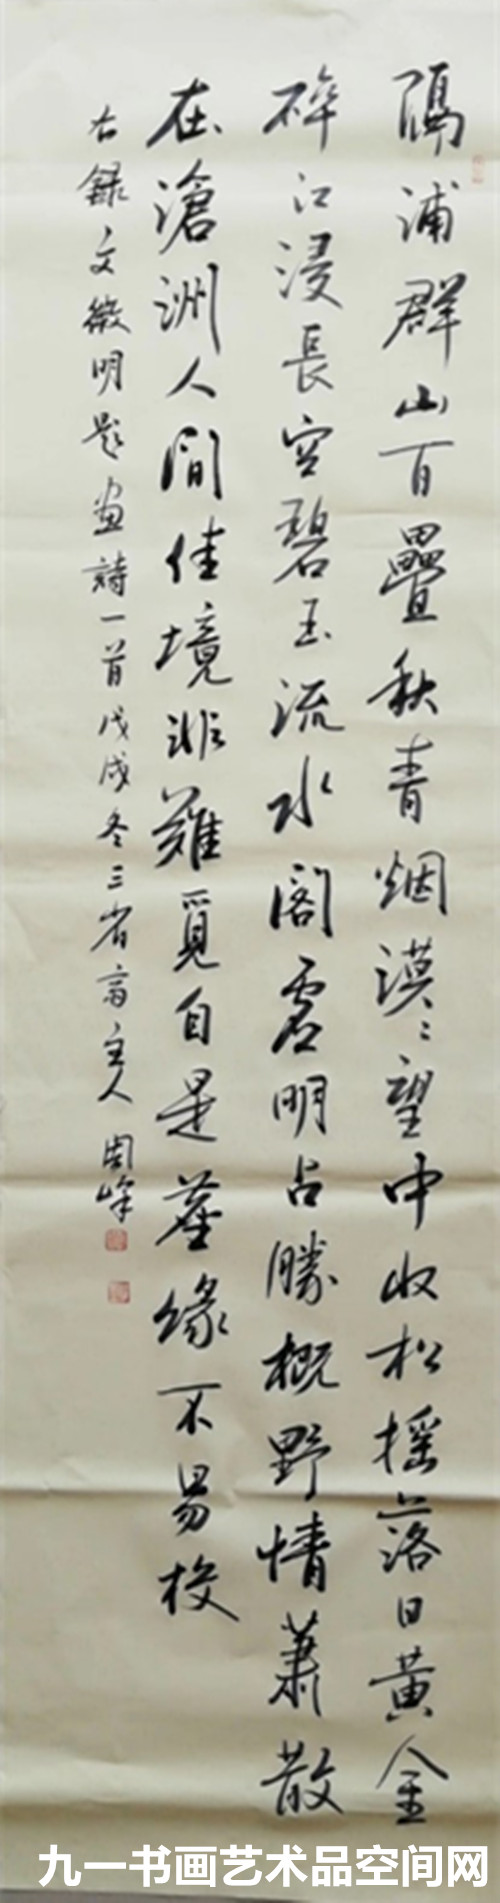 隔浦群山百疊秋青烟漠〻望中收松摇落日黄金
碎江浸長空碧玉流水阁虚明占勝概野情萧散
在滄洲人间佳境非難覓自是塵缘不易投
右録文徵明題画詩一首戊戌冬三省斋主人周峰
九一书画艺术品空间网